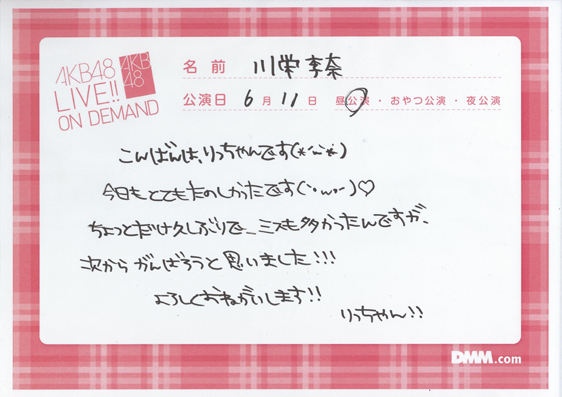 AKB48
LIVE!!
ON DEMAND
AKB
48
名前 川栄李奈
公演日 6月11日 昼公演・おやつ公演・夜公演
こんばんは、りっちゃんです(*´ω`*)
今日もとてもたのしかったです(`・ω・´)♡
ちょっとだけ久しぶりで、ミスも多かったんですが、
次からがんばろうと思いました!!!
よろしくおねがいします!!
りっちゃん!!
DMM.com